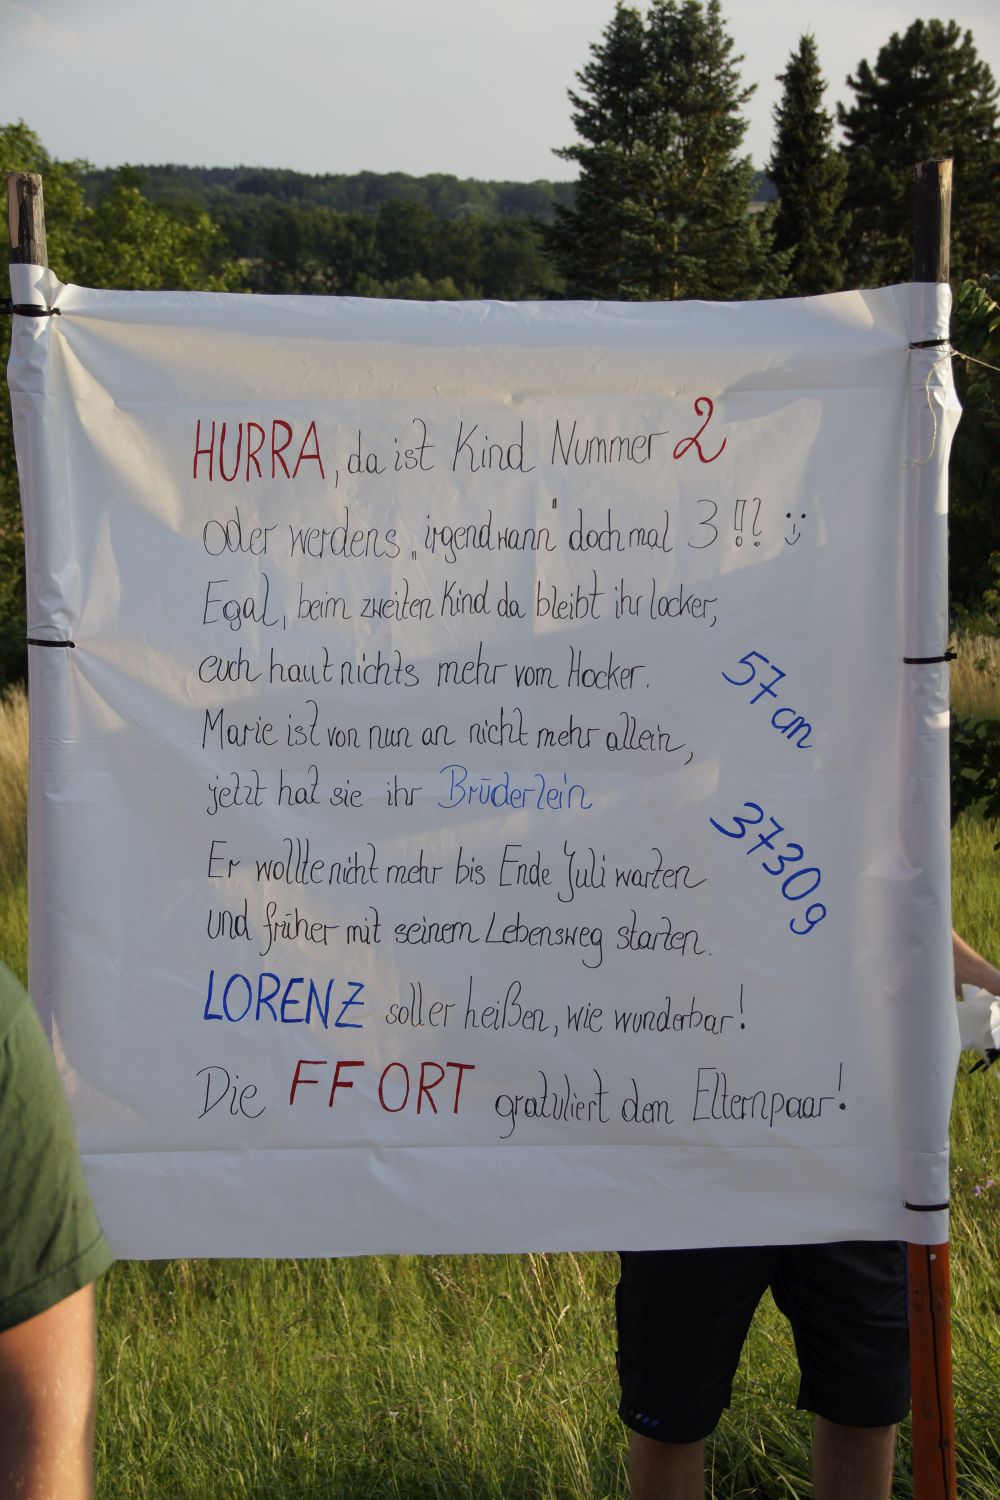 HURRA, da ist Kind Nummer 2
oder werdens „irgendwann" doch mal 3 !!? :)
Egal, beim zweiten Kind da bleibt ihr locker,
euch haut nichts mehr vom Hocker.
Marie ist von nun an nicht mehr allein,
jetzt hat sie ihr Brüderlein
57 cm
3730g
Er wollte nicht mehr bis Ende Juli warten
und früher mit seinem Lebensweg starten.
LORENZ soll er heißen, wie wunderbar!
Die FF ORT gratuliert dem Elternpaar!